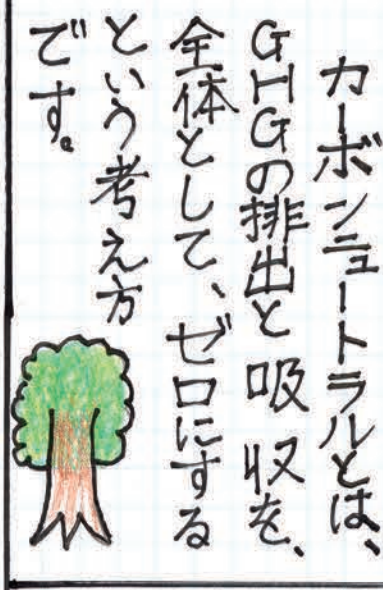 カーボンニュートラルとは、
GHGの排出と吸収を、
全体として、ゼロにする
という考え方
です。